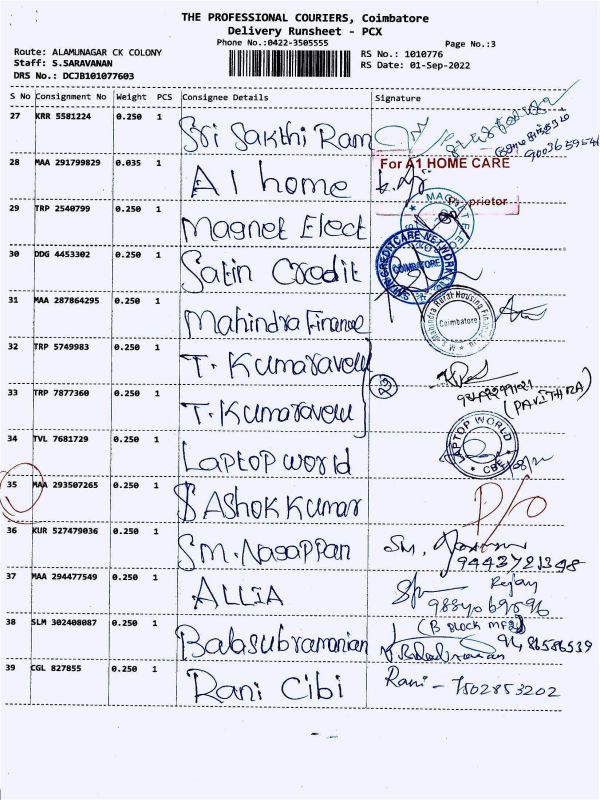 THE PROFESSIONAL COURIERS, Coimbatore
Delivery Runsheet - PCX
Phone No.:0422-3505555
Page No.:3
Route: ALAMUNAGAR CK COLONY
Staff: S.SARAVANAN
DRS No.: DCJB101077603
RS No.: 1010776
RS Date: 01-Sep-2022
S No Consignment No Weight PCS Consignee Details Signature
27 KRR 5581224 0.250 1 Sri Sakthi Ram
28 MAA 291799829 0.035 1 A1 home
For A1 HOME CARE
prietor
29 TRP 2540799 0.250 1 Magnet Elect
30 DDG 4453302 0.250 1 Satin Credit
COIMBATORE
31 MAA 287864295 0.250 1 Mahindra Finance
Coimbatore
32 TRP 5749983 0.250 1 T. Kumaravelu
33 TRP 7877360 0.250 1 T. Kumaravelu
(PAVITHRA)
34 TVL 7681729 0.250 1 Laptop world
LAPTOP WORLD
CBE
35 MAA 293507265 0.250 1 S ASHOK KUMAR
36 KUR 527479036 0.250 1 SM. Nagappan
SM.
9443721348
37 MAA 294477549 0.250 1 ALLIA
38 SLM 302408087 0.250 1 Balasubramanian
39 CGL 827855 0.250 1 Rani Cibi Rani - 7502853202